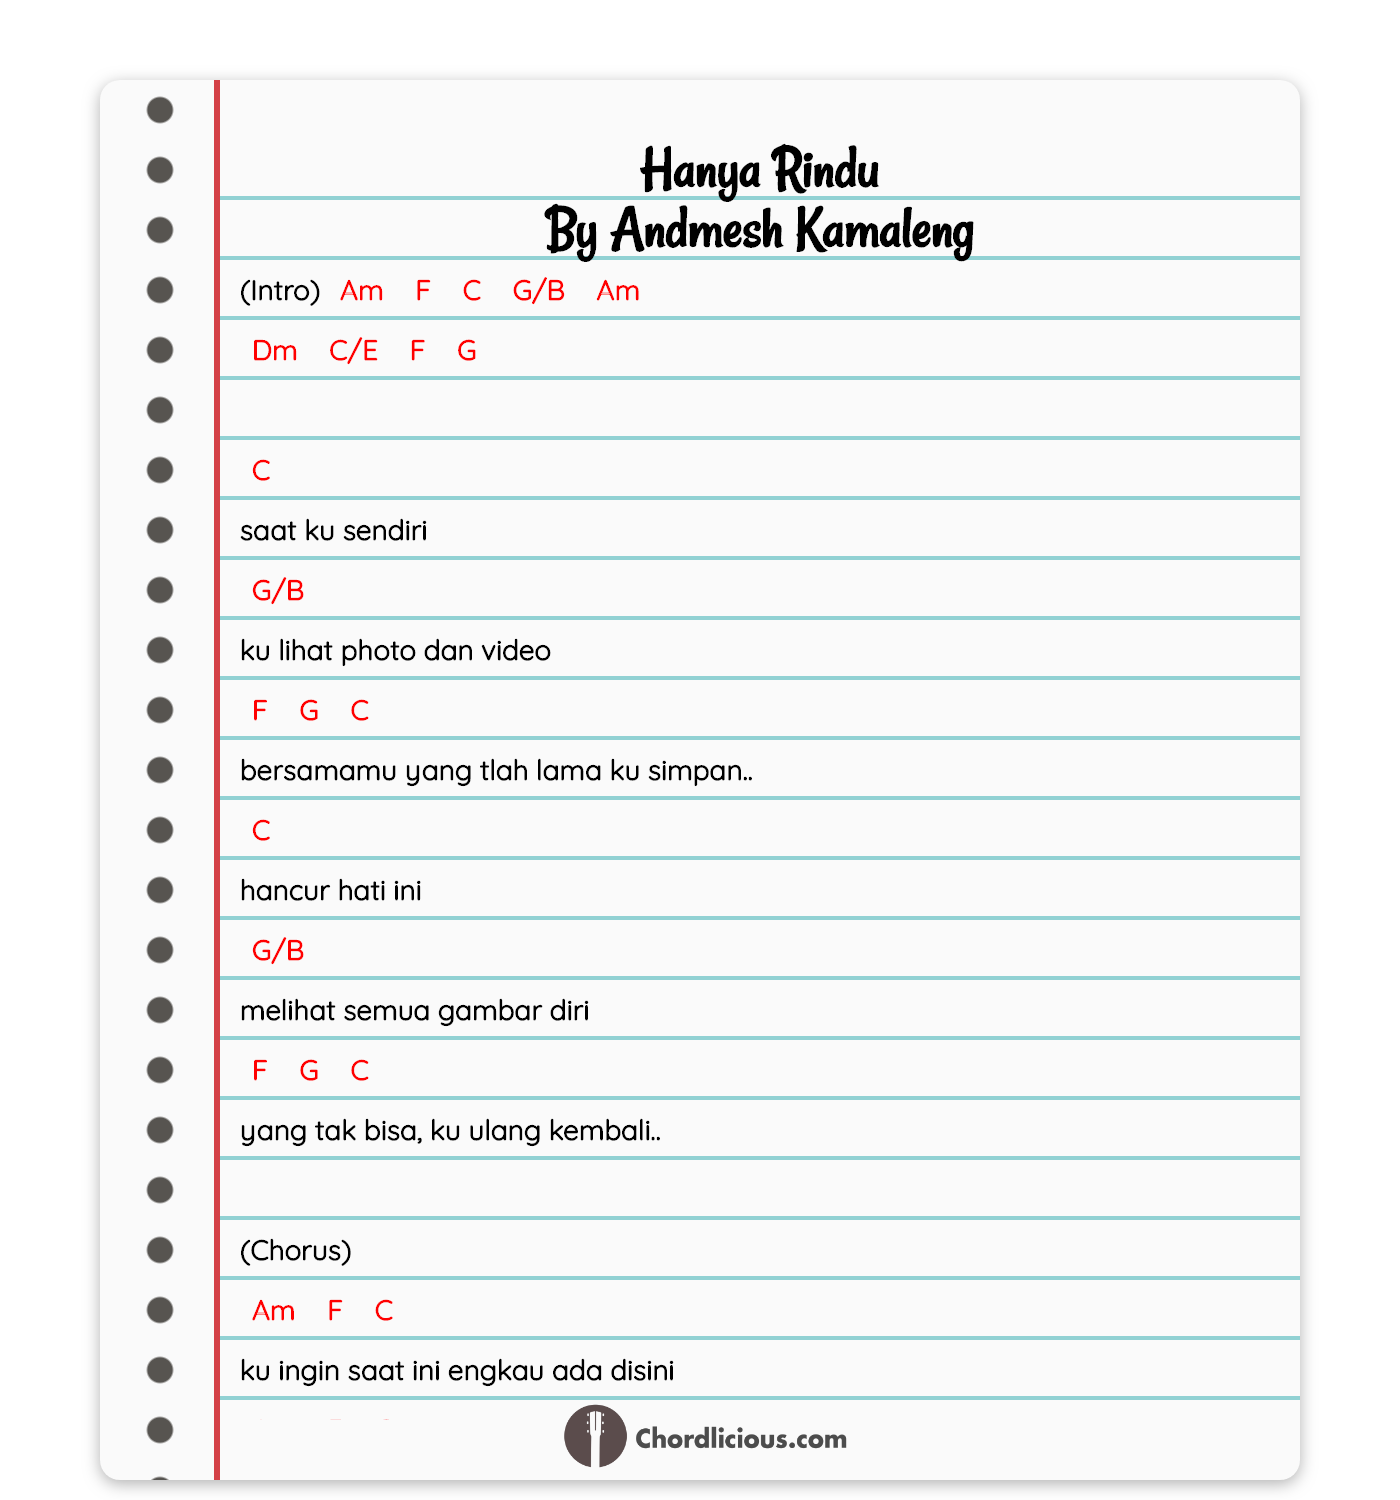 Hanya Rindu
By Andmesh Kamaleng
(Intro) Am F C G/B Am
Dm C/E F G
C
saat ku sendiri
G/B
ku lihat photo dan video
F G C
bersamamu yang tlah lama ku simpan..
C
hancur hati ini
G/B
melihat semua gambar diri
F G C
yang tak bisa, ku ulang kembali..
(Chorus)
Am F C
ku ingin saat ini engkau ada disini
Chordlicious.com